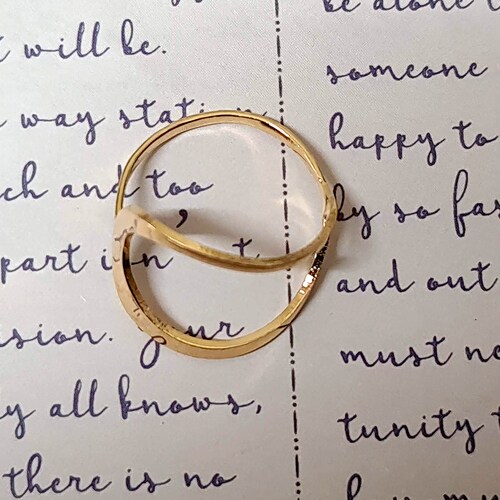 t will be.
way station
ch and too
part
sion. your
y all knows,
there is no
be alone
someone
happy to
by so fas
and out
must ne
tunity t